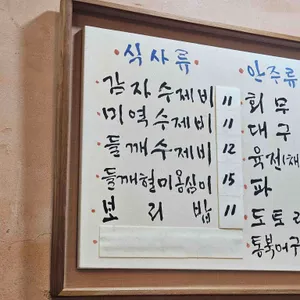 식사류
감자수제비 11
미역수제비 11
들깨수제비 12
들깨현미옹심이 15
보리밥 11
안주류
회무
대구
육전(채
파
도토리
통북어구